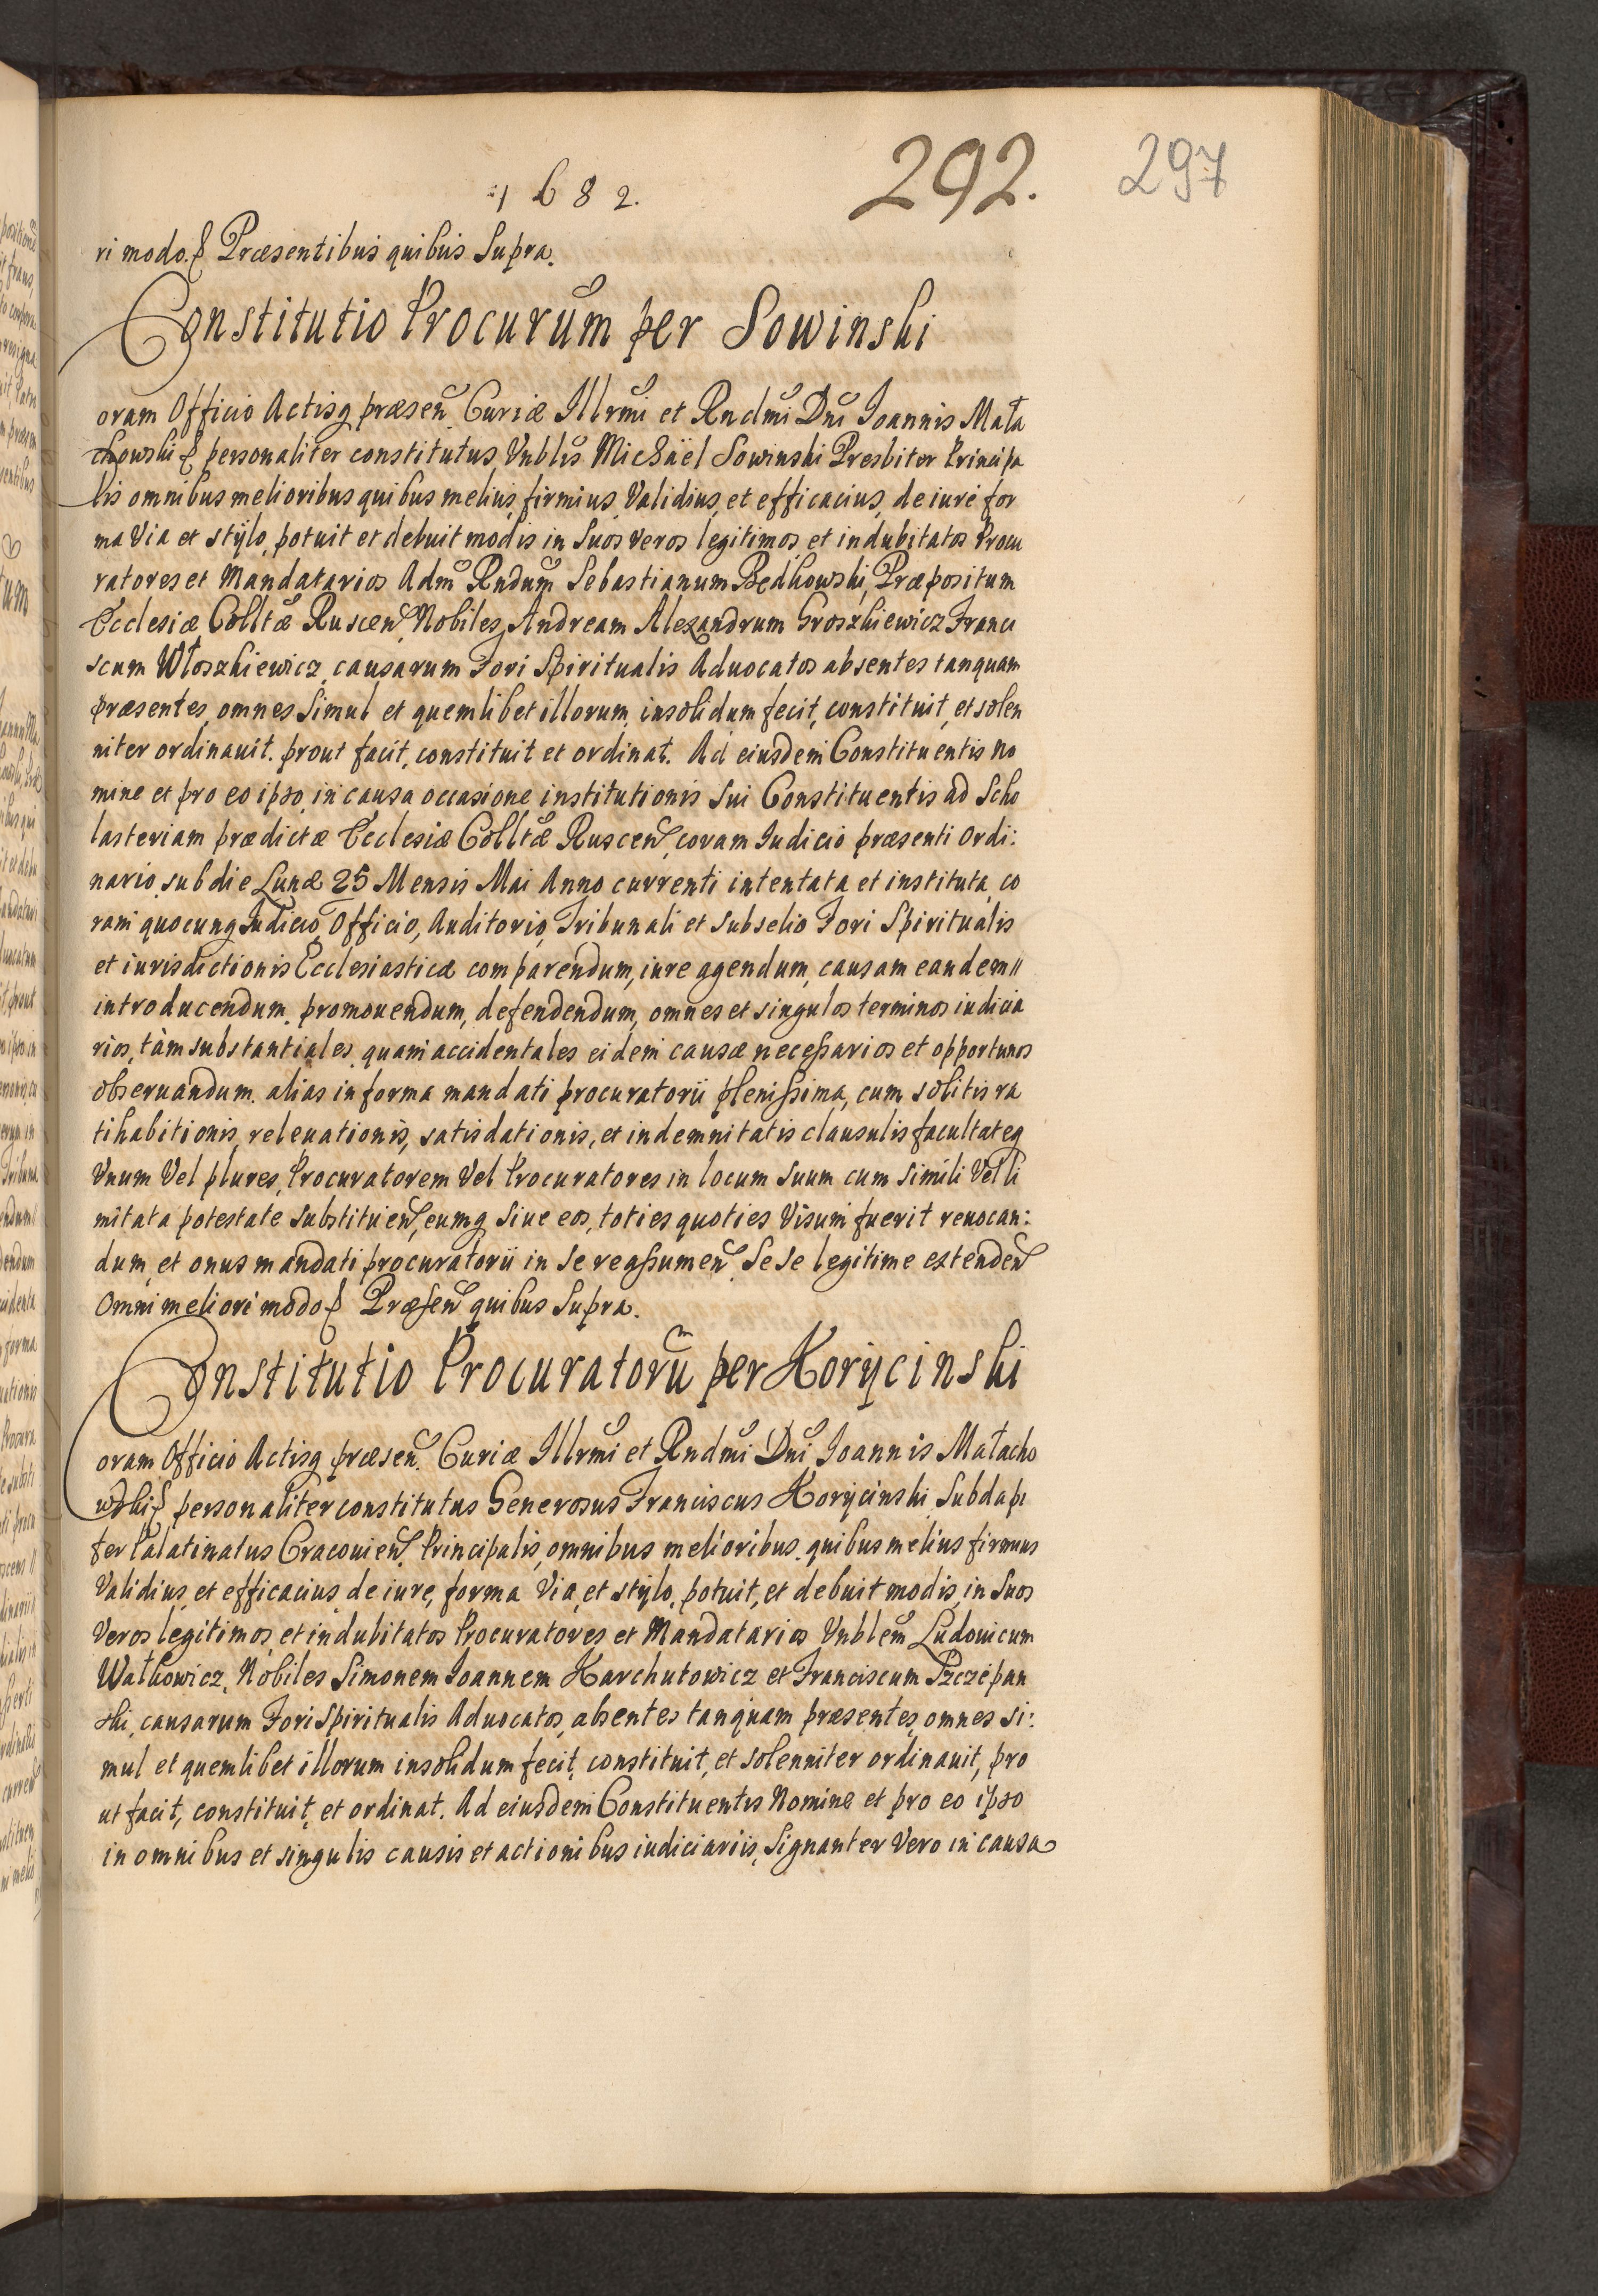 1682.
292.
297
ri modo. Præsentibus quibus Supra.
Constitutio Procurum̃ per Sowinski
oram Officio Actisq præsen̄. Curiæ Illr̃mi et Rndm̃i Dn̄i Joannis Mała
chowski personaliter constitutus Vnblis Michäel Sowinski Presbiter Principa
lis omnibus melioribus quibus melius, firmius, Validius, et efficacius, de iure for
ma Via et stÿlo, potuit et debuit modis in Suos veros legitimos, et indubitatos Procu
ratores et Mandatarios Adm̃ Rndum̃ Sebastianum Będkowski, Præpositum
Ecclesiæ Colltæ Ruscen̄. Nobiles, Andream Alexandrum Groszkiewicz Franci
scum Włoszkiewicz, causarum Fori Spiritualis Aduocatos absentes tanquam
præsentes, omnes Simul et quemlibet illorum, insolidum fecit, constituit, et solen
niter ordinauit. prout facit, constituit et ordinat. Ad eiusdem Constituentis no
mine et pro eo ipso, in causa occasione institutionis Sui Constituentis ad Scho
lasteriam prædictæ Ecclesiæ Colltæ Ruscen̄, coram Iudicio præsenti Ordi:
nario, sub die Lunæ 25 Mensis Mai Anno currenti intentata et instituta, co
ram quocunq Iudicio, Officio, Auditorio, Tribunali et subselio Fori Spiritualis
et iurisdictionis Ecclesiasticæ comparendum, iure agendum, causam eandem //
introducendum. promouendum, defendendum, omnes et singulos terminos iudicia
rios, tàm substantiales, quam accidentales eidem causæ necessarios et opportunos
obseruandum. alias in forma mandati procuratorii plenissima, cum solitis ra
tihabitionis, releuationis, satisdationis, et indemnitatis clausulis facultateq
Vnum Vel plures, Procuratorem Vel Procuratores in locum Suum cum simili Vel li
mitata potestate substituen̄, eumq siue eos, toties quoties Visum fuerit reuocan:
dum, et onus mandati procuratorii in se reassumen̄. Se se legitime extenden̄
Omni meliori modo Præsen̄ quibus Supra.
Constitutio Procuratorũ per Korÿcinski
oram Officio Actisq præsen̄. Curiæ Illr̃mi et Rndm̃i Dn̄i Joannis Małacho
wski personaliter constitutus Generosus Franciscus Korÿcinski Subdapi
fer Palatinatus Cracouien̄. Principalis, omnibus melioribus. quibus melius firmius
Validius, et efficacius, de iure, forma Via, et stÿlo, potuit, et debuit modis, in Suos
Veros legitimos, et indubitatos Procuratores et Mandatarios Vnblem̃ Ludouicum
Wałkowicz, Nobiles Simonem Joannem Karchutowicz et Franciscum Szczepan
ski, causarum Fori Spiritualis Aduocatos, absentes tanquam præsentes, omnes si:
mul et quemlibet illorum insolidum fecit, constituit, et solenniter ordinauit, pro
ut facit, constituit, et ordinat. Ad eiusdem Constituentis Nomine et pro eo ipso
in omnibus et singulis causis et actionibus iudiciariis, Signanter Vero in causa